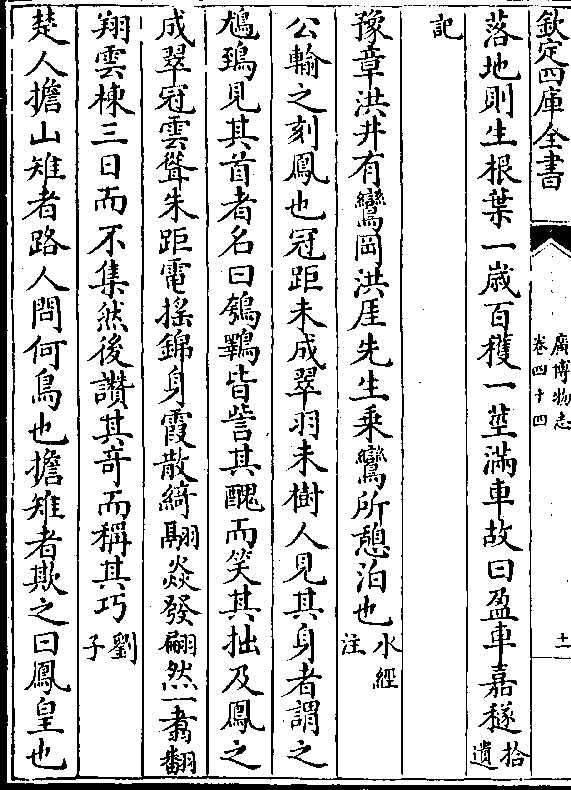 欽定四庫全書
廣博物志
卷四十四
十一
落地則生根葉一歳百穫一莖滿車故曰盈車嘉穟拾遺
記
豫章洪井有鸞岡洪厓先生乘鸞所憩泊也水經注
公輸之刻鳳也冠距未成翠羽未樹人見其身者謂之
鵄見其首者名曰鴮鸅皆訾其醜而笑其拙及鳳之
成翠冠雲聳朱距電揺錦身霞散綺翮焱發翽然一翥翻
翔雲棟三日而不集然後讚其竒而稱其巧劉子
楚人擔山雉者路人問何鳥也擔雉者欺之曰鳳皇也